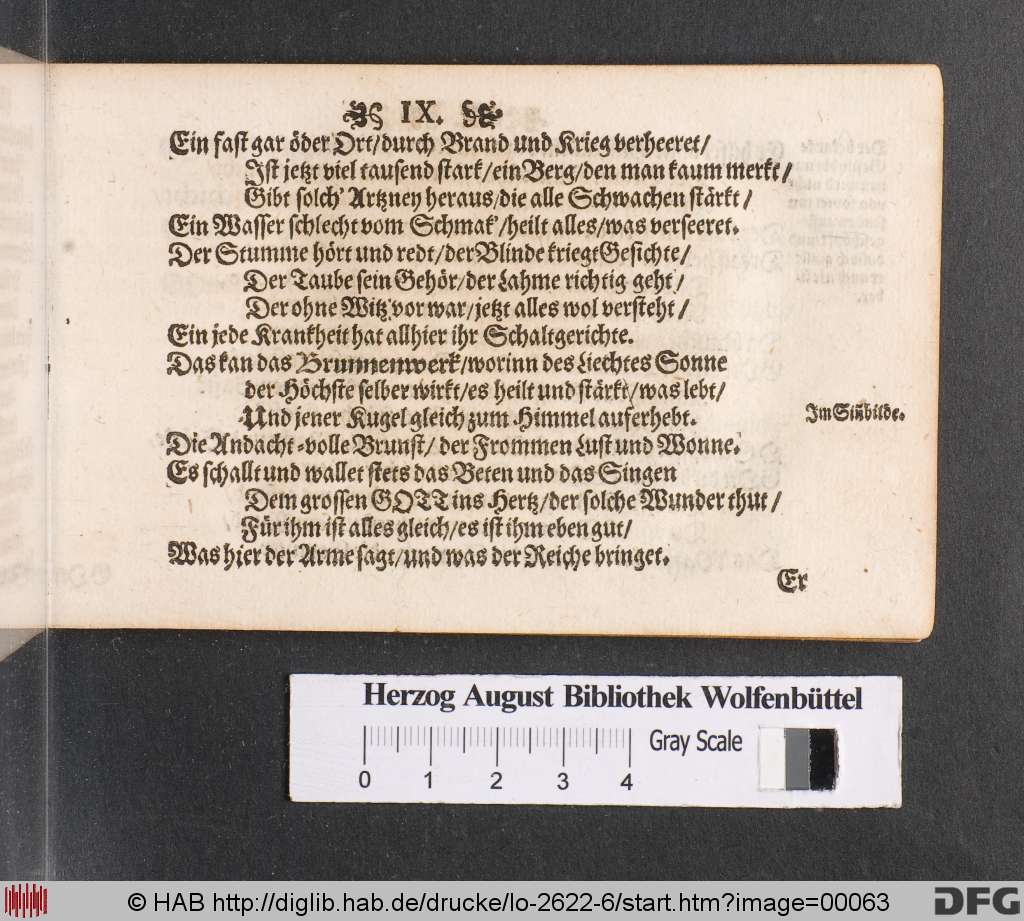 IX.
Ein fast gar öder Ort/durch Brand und Krieg verheeret/
Ist jetzt viel tausend stark/ein Berg/den man kaum merkt/
Gibt solch' Artzney heraus/die alle Schwachen stärkt/
Ein Wasser schlecht vom Schmak'/heilt alles/was verseeret.
Der Stumme hört und redt/der Blinde kriegt Gesichte/
Der Taube sein Gehör/der Lahme richtig geht/
Der ohne Witz vor war/jetzt alles wol versteht/
Ein jede Krankheit hat allhier ihr Schaltgerichte.
Das kan das Brunnenwerk/worinn des Liechtes Sonne
der Höchste selber wirkt/es heilt und stärkt/was lebt/
Und jener Kugel gleich zum Himmel auferhebt.
Im Siñbilde.
Die Andacht-volle Brunst/der Frommen Lust und Wonne.
Es schallt und wallet stets das Beten und das Singen
Dem grossen GOTT ins Hertz/der solche Wunder thut/
Für ihm ist alles gleich/es ist ihm eben gut/
Was hier der Arme sagt/und was der Reiche bringet.
Er
Herzog August Bibliothek Wolfenbüttel
0 1 2 3 4
Gray Scale
© HAB http://diglib.hab.de/drucke/lo-2622-6/start.htm?image=00063
DFG